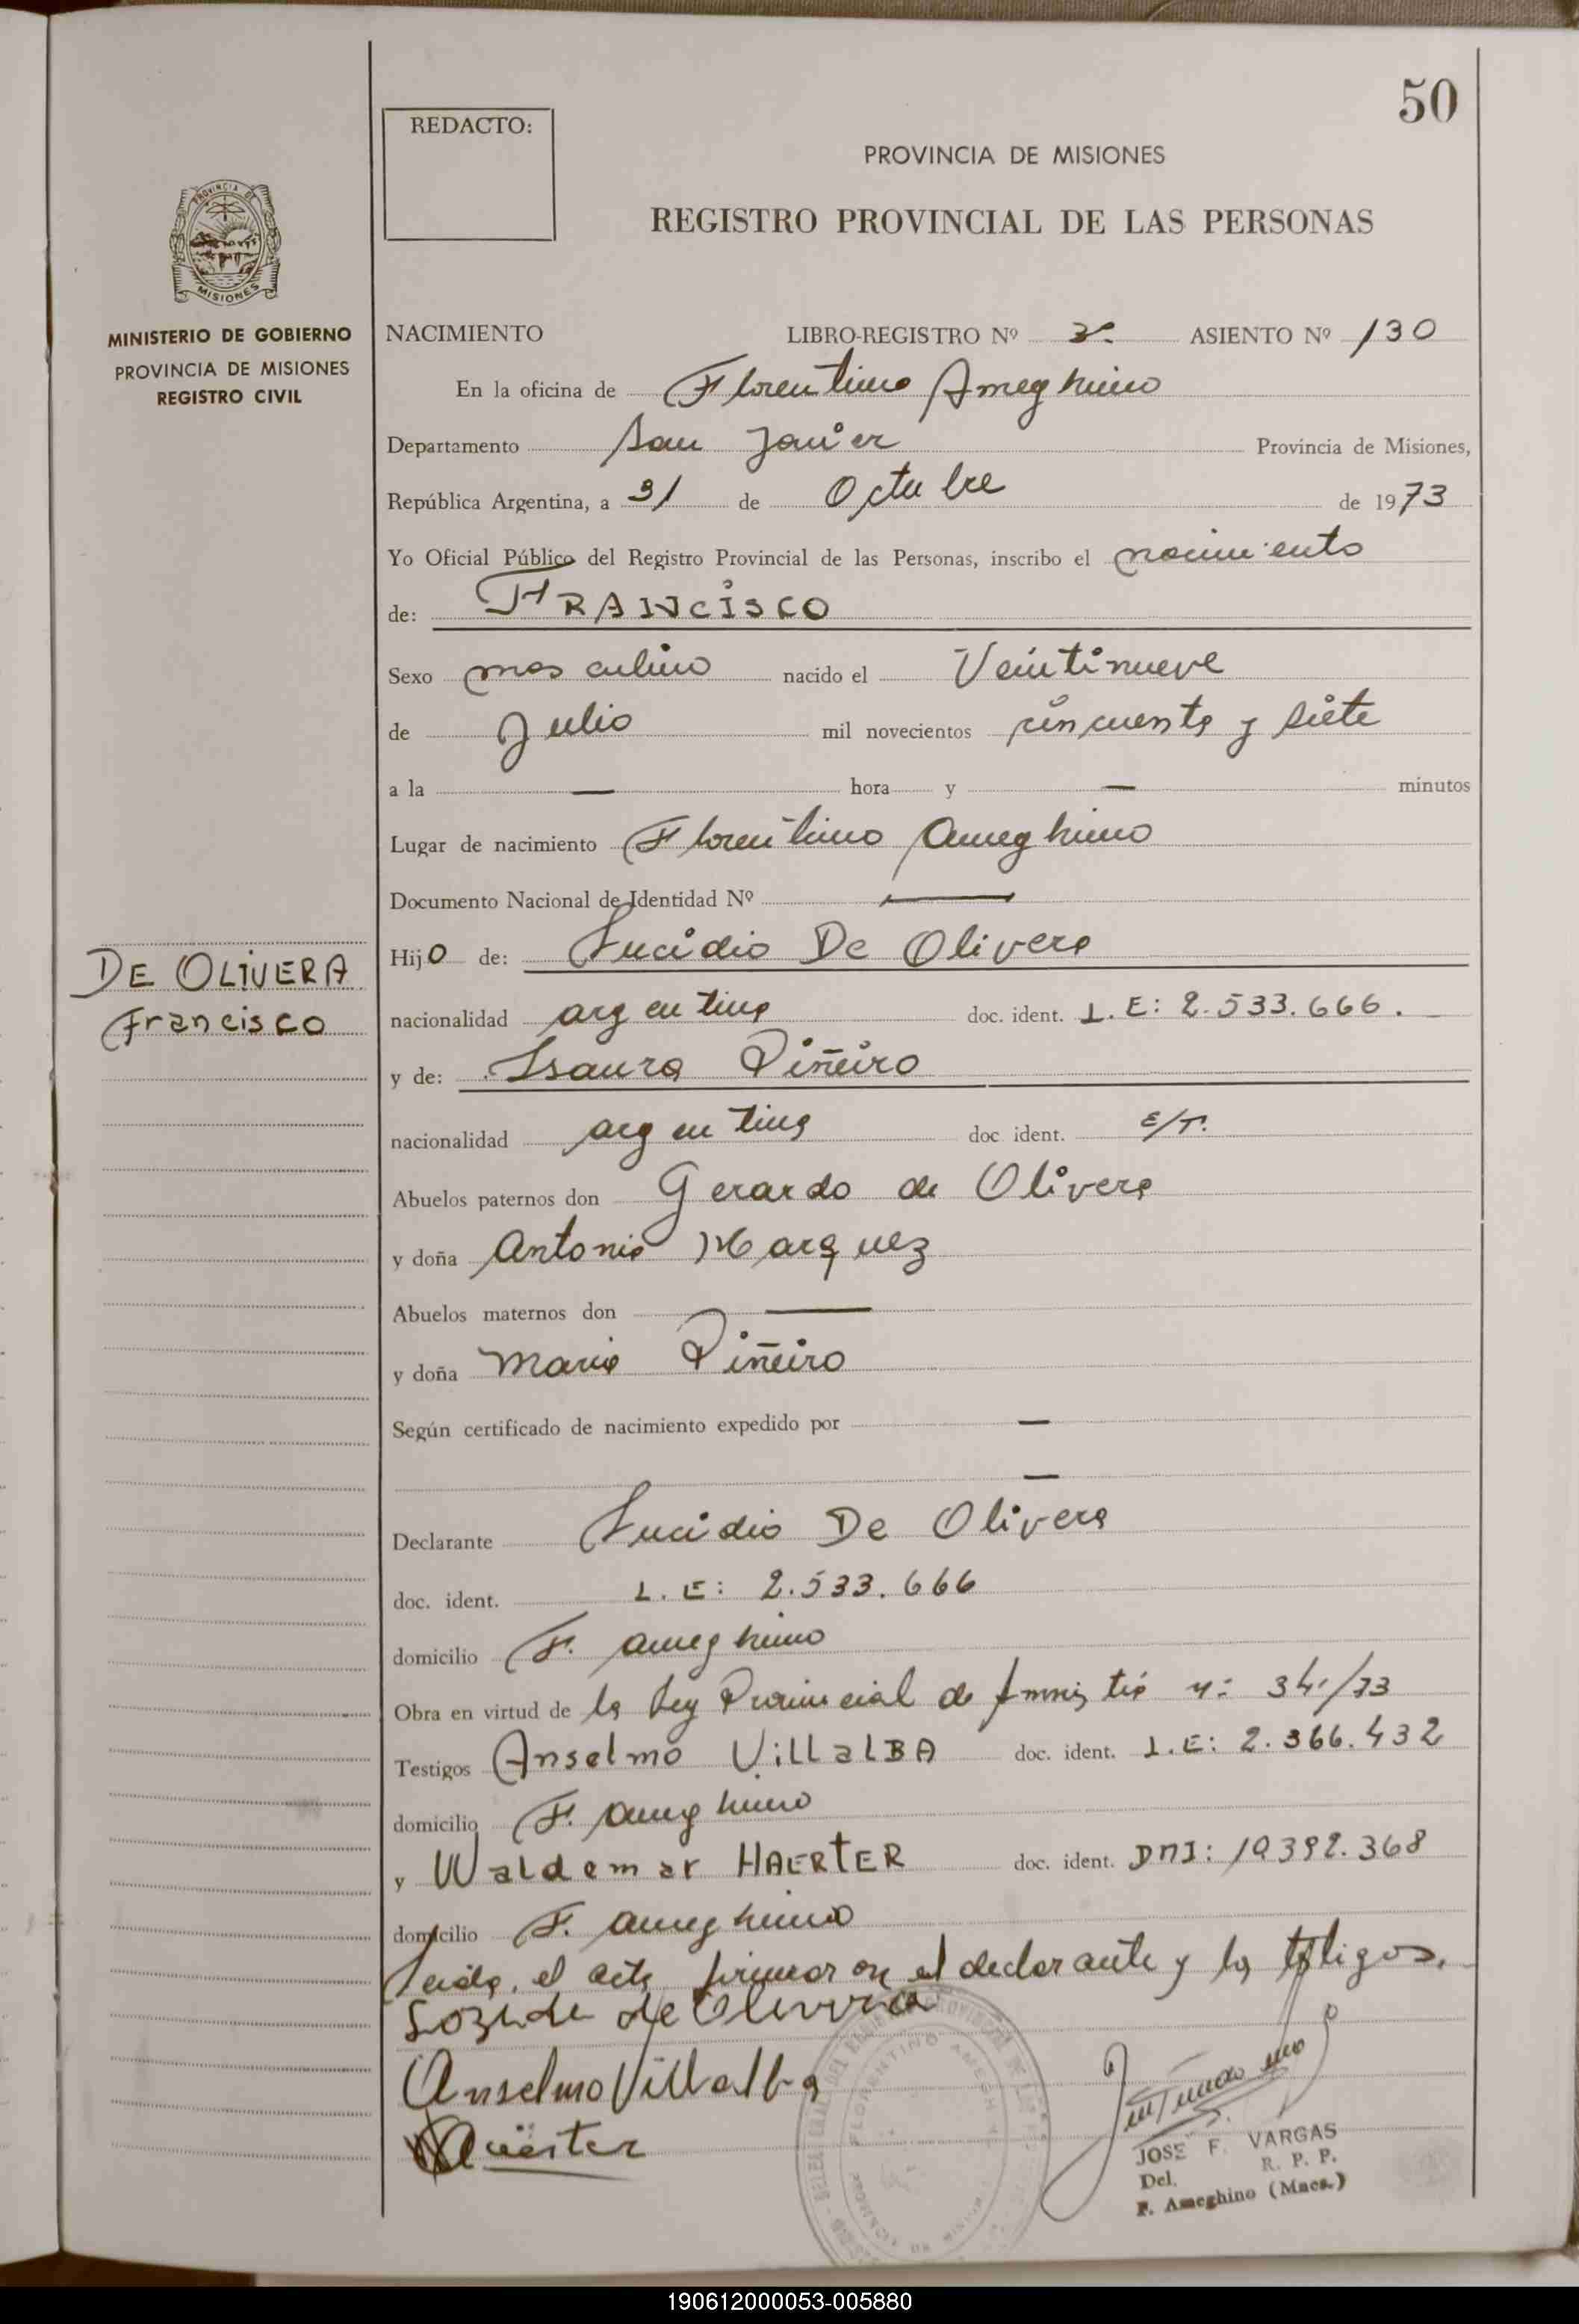 50
REDACTO:
PROVINCIA DE MISIONES
REGISTRO PROVINCIAL DE LAS PERSONAS
PROVINCIA DE
MISIONES
MINISTERIO DE GOBIERNO
PROVINCIA DE MISIONES
REGISTRO CIVIL
NACIMIENTO LIBRO-REGISTRO Nº 3º ASIENTO Nº 130
En la oficina de Florentino Ameghino
Departamento San Javier Provincia de Misiones,
República Argentina, a 31 de Octubre de 1973
Yo Oficial Público del Registro Provincial de las Personas, inscribo el nacimiento
de: FRANCISCO
Sexo masculino nacido el Veintinueve
de Julio mil novecientos cincuenta y siete
a la — hora y — minutos
Lugar de nacimiento Florentino Ameghino
Documento Nacional de Identidad Nº —
DE OLIVERA
Francisco
Hijo de: Lucidio De Olivera
nacionalidad argentina doc. ident. L.E: 2.533.666.
y de: Isaura Piñeiro
nacionalidad argentina doc ident. E/T.
Abuelos paternos don Gerardo de Olivera
y doña Antonia Marquez
Abuelos maternos don —
y doña Maria Piñeiro
Según certificado de nacimiento expedido por —
—
Declarante Lucidio De Olivera
doc. ident. L.E: 2.533.666
domicilio F. Ameghino
Obra en virtud de la Ley Provincial de Amnistia nº 341/73
Testigos Anselmo VillaLBA doc. ident. L.E: 2.366.432
domicilio F. Ameghino
y Waldemar HAERTER doc. ident. DNI: 10392.368
domicilio F. Ameghino
Leida, el acta firmaron el declarante y los testigos.
de Olivera
Anselmo Villalba
JOSE F. VARGAS
Del. R. P. P.
F. Ameghino (Mnes.)
FLORENTINO AMEGHINO
190612000053-005880